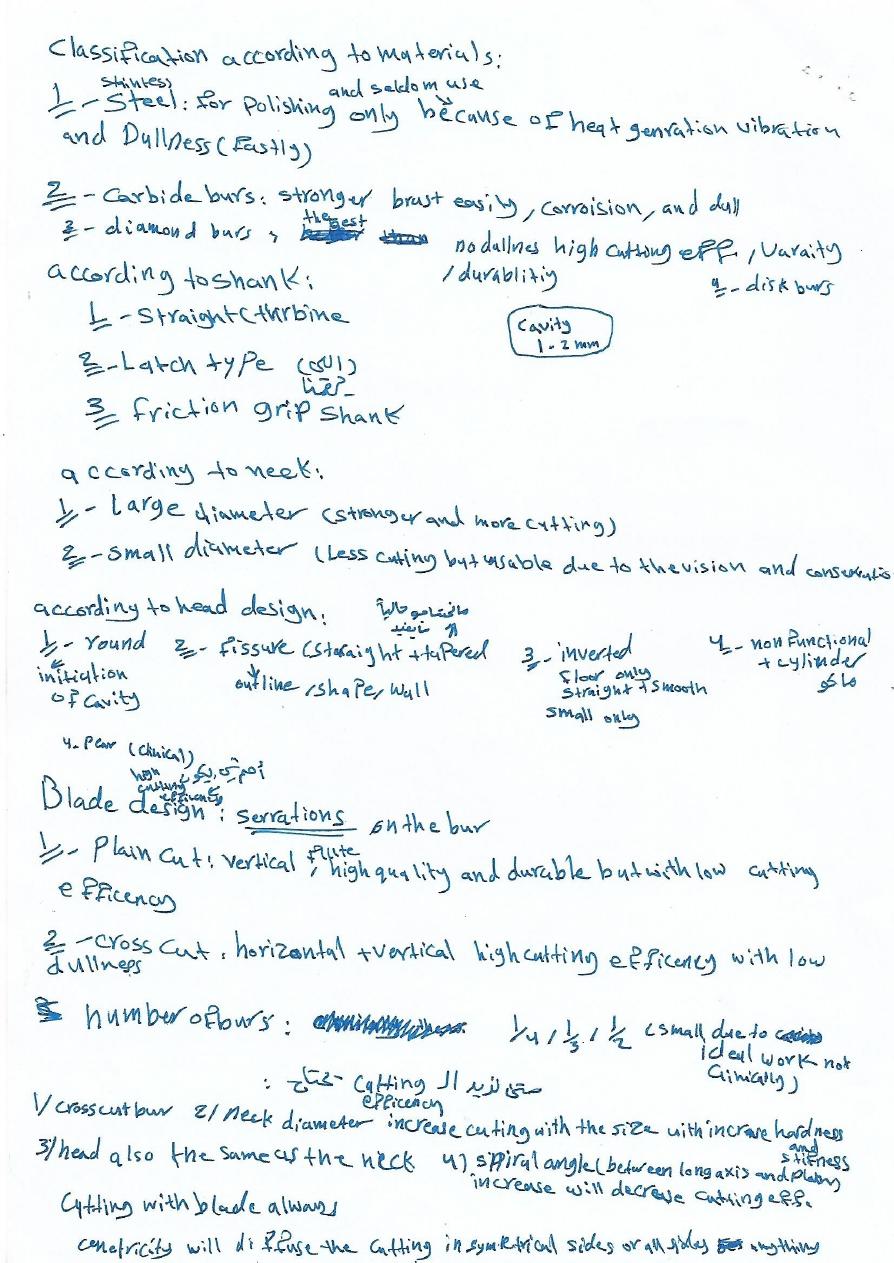 Classification according to materials:
stinless and seldom use
1 - Steel: for polishing only because of heat genration vibration
and Dullness (fastly)
2 - Carbide burs: stronger brust easily, corroision, and dull
3 - diamond burs, the best no dullnes high cutting eff, Varaity
/durablitiy
4 - disk burs
according to shank:
1 - Straight (thrbine
Cavity
1-2 mm
2 - Latch type
3 friction grip shank
according to neek:
1 - Large diameter (stronger and more cutting)
2 - small diameter (Less cuting but usable due to the vision and
according to head design:
1 - round 2 - fissure (straight + tapered 3 - inverted 4 - non functional
initiation outline/shape/wall floor only + cylinder
of cavity straight + smooth ماكو
small only
4. Pear (clinical)
high
cutting
efficency
Blade design: serrations on the bur
1 - Plain cut: vertical flute, high quality and durable but with low cutting
efficency
2 - cross cut: horizontal + vertical high cutting efficency with low
dullness
number of burs: 1/4 / 1/3 / 1/2 (small due to
ideal work not
Clinically)
نزيد الـ Cutting نحتاج :
efficency
1/ cross cut bur 2/ Neck diameter increase cuting with the size with increase hardness
and stifness
3/ head also the same as the neck 4) spiral angle (between long axis and
increase will decrease cutting eff.
Cutting with blade always
cenetricity will diffuse the cutting in symetrical sides or all sides anything